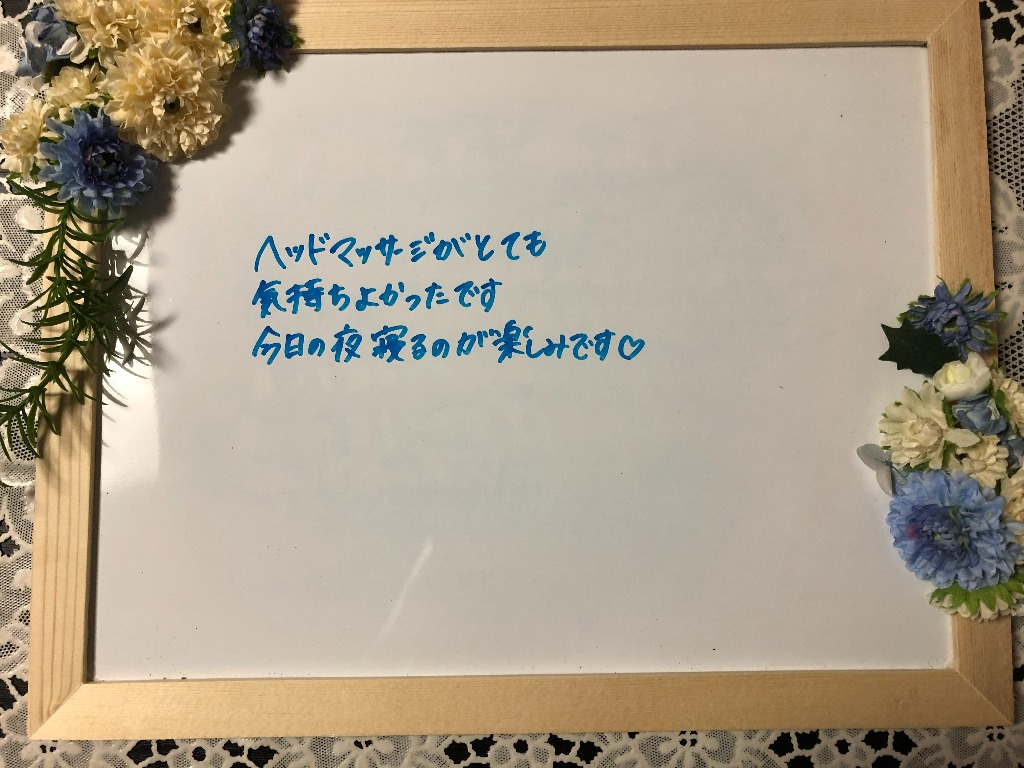 ヘッドマッサージがとても
気持ちよかったです
今日の夜寝るのが楽しみです♡